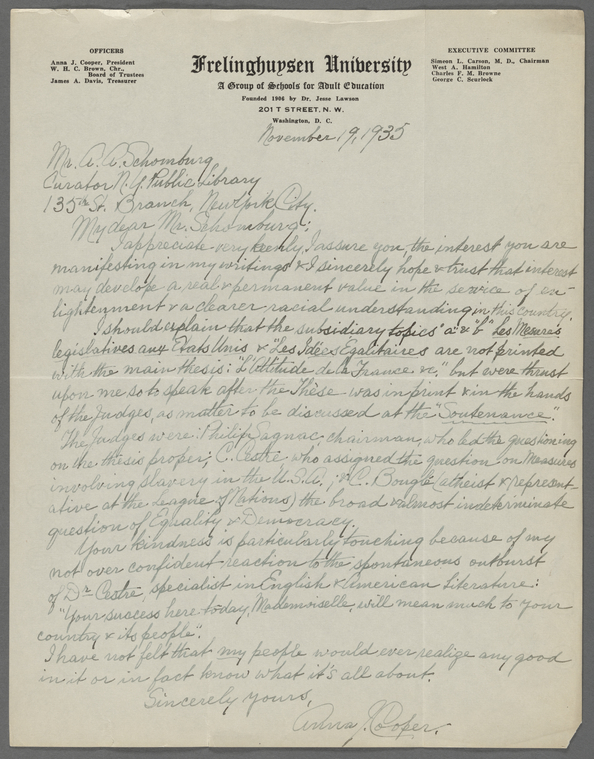 OFFICERS
Anna J. Cooper, President
W. H. C. Brown, Chr.,
Board of Trustees
James A. Davis, Treasurer
Frelinghuysen University
A Group of Schools for Adult Education
Founded 1906 by Dr. Jesse Lawson
201 T STREET, N. W.
Washington, D. C.
EXECUTIVE COMMITTEE
Simeon L. Carson, M. D., Chairman
West A. Hamilton
Charles F. M. Browne
George C. Scurlock
November 19, 1935
Mr. A. A. Schomburg
Curator N. Y. Public Library
135th St. Branch, New York City.
My dear Mr. Schomburg;
I appreciate very keenly, I assure you, the interest you are
manifesting in my writings & I sincerely hope & trust that interest
may develope a real & permanent value in the service of en-
lightenment & a clearer racial understanding in this country.
I should explain that the subsidiary topics "a" & "b" Les Mesures
legislatives aux Etats Unis & "Les Idées Egalitaires are not printed
with the main thesis: "L'Attitude de la France &c," but were thrust
upon me so to speak after the Thèse was in print & in the hands
of the Judges, as matter to be discussed at the "Soutenance".
The Judges were: Philip Sagnac, chairman, who led the questioning
on the thesis proper; C. Cestre who assigned the question on Measures
involving slavery in the U.S.A.; & C. Bouglé (atheist & represent-
ative at the League of Nations) the broad & almost indeterminate
question of Equality & Democracy.
Your kindness is particularly touching because of my
not over confident reaction to the spontaneous outburst
of Dr Cestre, specialist in English & American Literature:
"Your success here to-day, Mademoiselle, will mean much to your
country & its people".
I have not felt that my people would ever realize any good
in it or in fact know what it's all about.
Sincerely yours,
Anna J. Cooper.